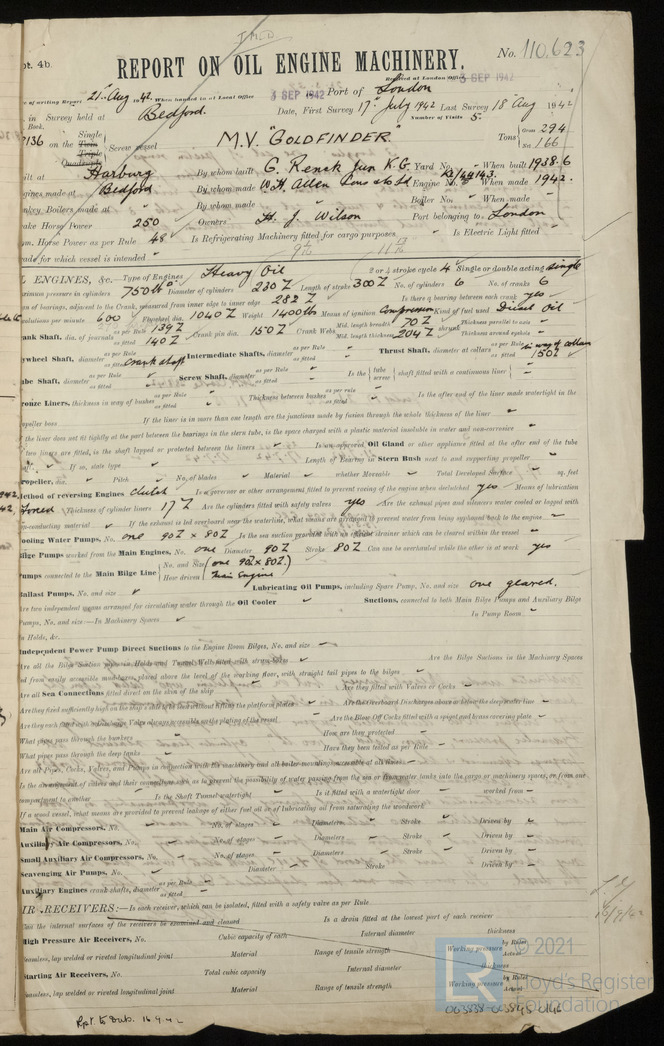 pt. 4b.
REPORT ON OIL ENGINE MACHINERY.
No. 110,623
Received at London Office
3 SEP 1942
e of writing Report 21st Aug 1942 When handed in at Local Office 3 SEP 1942 Port of London
in Survey held at Bedford. Date, First Survey 17th July 1942 Last Survey 18 Aug 1942
Book.
Number of Visits 5.
136 on the Single Twin Triple Quadruple Screw vessel M.V. "GOLDFINDER" Tons Gross 294 Net 166
uilt at Harburg By whom built G. Renck Jun K.G. Yard No. When built 1938.6
ngines made at Bedford By whom made W.H. Allen Sons & Co Ld Engine No. When made 1942.
onkey Boilers made at By whom made Boiler No. When made
ake Horse Power 250 Owners H. J. Wilson Port belonging to London
om. Horse Power as per Rule 48 Is Refrigerating Machinery fitted for cargo purposes Is Electric Light fitted
rade for which vessel is intended
L ENGINES, &c. Type of Engines Heavy Oil 2 or 4 stroke cycle 4 Single or double acting Single
aximum pressure in cylinders 750 Diameter of cylinders 230 Length of stroke 300 No. of cylinders 6 No. of cranks 6
an of bearings, adjacent to the Crank, measured from inner edge to inner edge 282 Is there a bearing between each crank yes
evolutions per minute 600 Flywheel dia. 1040 Weight 1400 lbs Means of ignition Compression Kind of fuel used Diesel Oil
rank Shaft, dia. of journals as per Rule 139 as fitted 140 Crank pin dia. 150 Crank Webs Mid. length breadth 70 Mid. length thickness 204 shrunk Thickness parallel to axis Thickness around eyehole
ywheel Shaft, diameter as per Rule as fitted Crank shaft Intermediate Shafts, diameter as per Rule as fitted Thrust Shaft, diameter at collars as per Rule as fitted in way of collars 150
ube Shaft, diameter as per Rule as fitted Screw Shaft, diameter as per Rule as fitted Is the tube screw shaft fitted with a continuous liner
ronze Liners, thickness in way of bushes as per Rule as fitted Thickness between bushes as per rule as fitted Is the after end of the liner made watertight in the
ropeller boss If the liner is in more than one length are the junctions made by fusion through the whole thickness of the liner
the liner does not fit tightly at the part between the bearings in the stern tube, is the space charged with a plastic material insoluble in water and non-corrosive
two liners are fitted, is the shaft lapped or protected between the liners Is an approved Oil Gland or other appliance fitted at the after end of the tube
If so, state type Length of Bearing in Stern Bush next to and supporting propeller
ropeller, dia. Pitch No. of blades Material whether Moveable Total Developed Surface sq. feet
ethod of reversing Engines clutch Is a governor or other arrangement fitted to prevent racing of the engine when declutched yes Means of lubrication
forced Thickness of cylinder liners 17 Are the cylinders fitted with safety valves yes Are the exhaust pipes and silencers water cooled or lagged with
on-conducting material If the exhaust is led overboard near the waterline, what means are arranged to prevent water from being syphoned back to the engine
ooling Water Pumps, No. one 90 x 80 Is the sea suction provided with an efficient strainer which can be cleared within the vessel
ilge Pumps worked from the Main Engines, No. one Diameter 90 Stroke 80 Can one be overhauled while the other is at work yes
umps connected to the Main Bilge Line No. and Size (one 90 x 80) How driven Main Engine
allast Pumps, No. and size Lubricating Oil Pumps, including Spare Pump, No. and size one geared.
Are two independent means arranged for circulating water through the Oil Cooler Suctions, connected to both Main Bilge Pumps and Auxiliary Bilge
Pumps, No. and size:—In Machinery Spaces In Pump Room
n Holds, &c.
Independent Power Pump Direct Suctions to the Engine Room Bilges, No. and size
Are all the Bilge Suction pipes in Holds and Tunnel Well fitted with strum-boxes Are the Bilge Suctions in the Machinery Spaces
ed from easily accessible mud-boxes, placed above the level of the working floor, with straight tail pipes to the bilges
Are all Sea Connections fitted direct on the skin of the ship Are they fitted with Valves or Cocks
Are they fixed sufficiently high on the ship's side to be seen without lifting the platform plates Are the Overboard Discharges above or below the deep water line
Are they each fitted with a Discharge Valve always accessible on the plating of the vessel Are the Blow Off Cocks fitted with a spigot and brass covering plate
What pipes pass through the bunkers How are they protected
What pipes pass through the deep tanks Have they been tested as per Rule
Are all Pipes, Cocks, Valves, and Pumps in connection with the machinery and all boiler mountings accessible at all times
Is the arrangement of valves and their connections such as to prevent the possibility of water passing from the sea or from water tanks into the cargo or machinery spaces, or from one
compartment to another Is the Shaft Tunnel watertight Is it fitted with a watertight door worked from
If a wood vessel, what means are provided to prevent leakage of either fuel oil or lubricating oil from saturating the woodwork
Main Air Compressors, No. No. of stages Diameters Stroke Driven by
Auxiliary Air Compressors, No. No. of stages Diameters Stroke Driven by
Small Auxiliary Air Compressors, No. No. of stages Diameters Stroke Driven by
Scavenging Air Pumps, No. Diameter Stroke Driven by
Auxiliary Engines crank shafts, diameter as per Rule as fitted
IR RECEIVERS:—Is each receiver, which can be isolated, fitted with a safety valve as per Rule
Can the internal surfaces of the receivers be examined and cleaned Is a drain fitted at the lowest part of each receiver
High Pressure Air Receivers, No. Cubic capacity of each Internal diameter thickness
Seamless, lap welded or riveted longitudinal joint Material Range of tensile strength Working pressure by Rules Actual
Starting Air Receivers, No. Total cubic capacity Internal diameter thickness
Seamless, lap welded or riveted longitudinal joint Material Range of tensile strength Working pressure by Rules Actual
© 2021
Lloyd's Register
Foundation
Rpt. to Dub. 16.9.42
003838-003848-0146